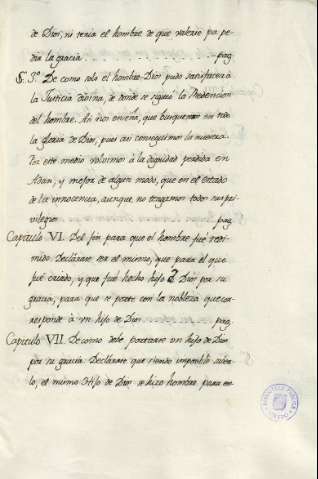 de Dios, ni tenia el hombre de que valerse pa pe-
dir la gracia . . . . . . . . . . . . . . . . pag
§. 3º. De como solo el hombre Dios pudo satisfacer à
la Justicia divina, de donde se siguió la Redencion
del hombre. Asi nos enseña, que busquemos en todo
la gloria de Dios, pues asi conseguimos la nuestra.
Por este medio volvimos à la dignidad perdida en
Adan, y mejor de algun modo, que en el Estado
de la innocencia, aunque no tengamos todos sus pri-
vilegios . . . . . . . . . . . . . . . . pag
Capitulo VI. Del fin para que el hombre fué redi-
mido. Declárase era el mismo, que para el que
fué criado, y que fué hecho hijo de Dios por su
gracia, para que se porte con la nobleza que cor-
responde à un hijo de Dios . . . . . . . . pag.
Capitulo VII. De como debe portarse un hijo de Dios
por su gracia. Declárase que siendo imposible saber-
lo, el mismo Hijo de Dios se hizo hombre para en-